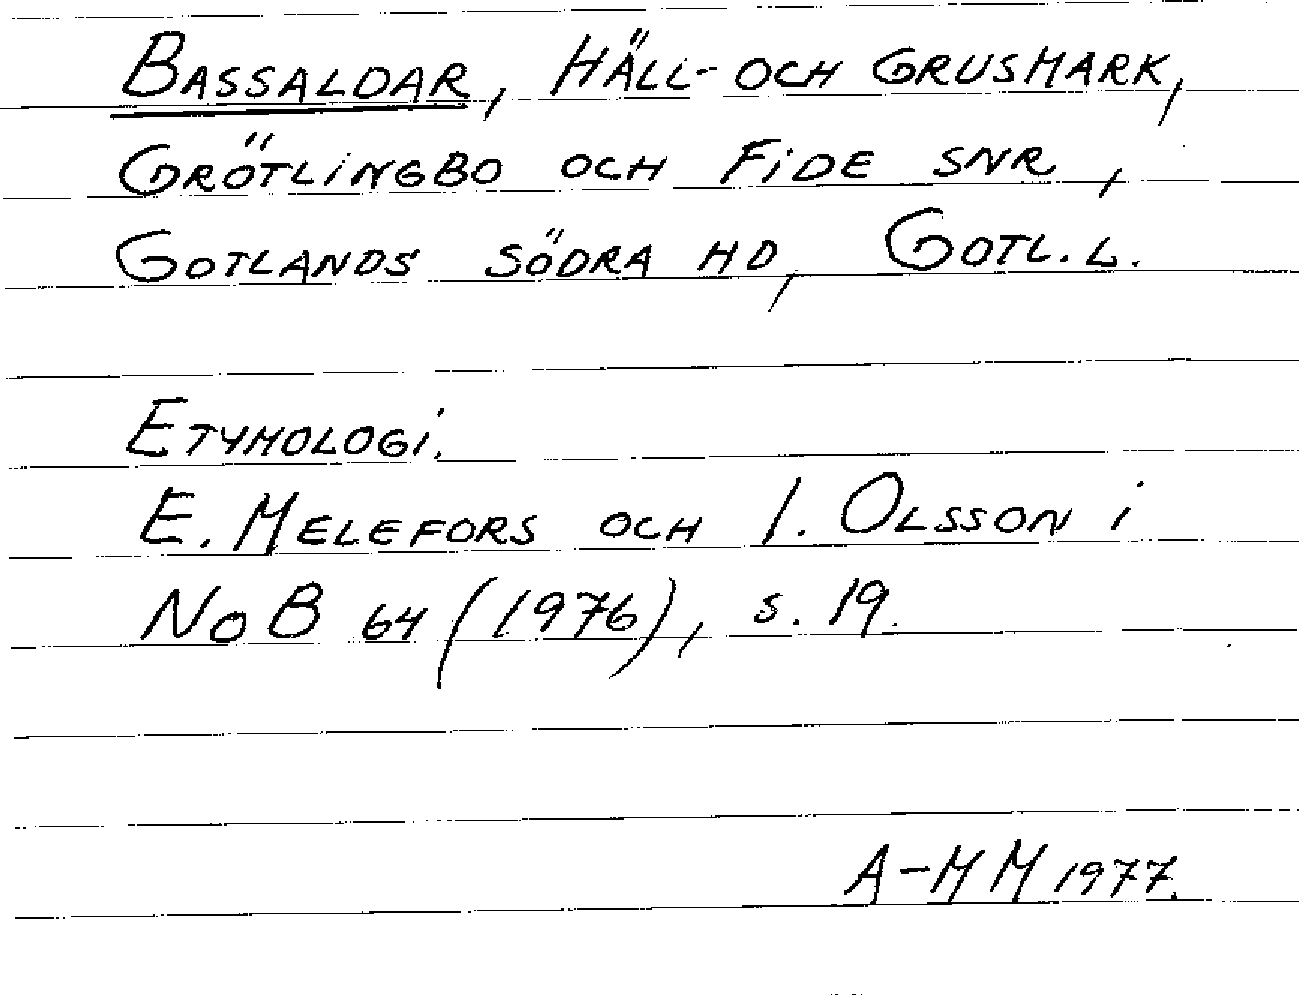 BASSALDAR, HÄLL- OCH GRUSMARK,
GRÖTLINGBO OCH FIDE SNR,
GOTLANDS SÖDRA HD, GOTL. L.
ETYMOLOGI.
E. MELEFORS OCH I. OLSSON i
NoB 64 (1976), s. 19.
A-MM 1977.